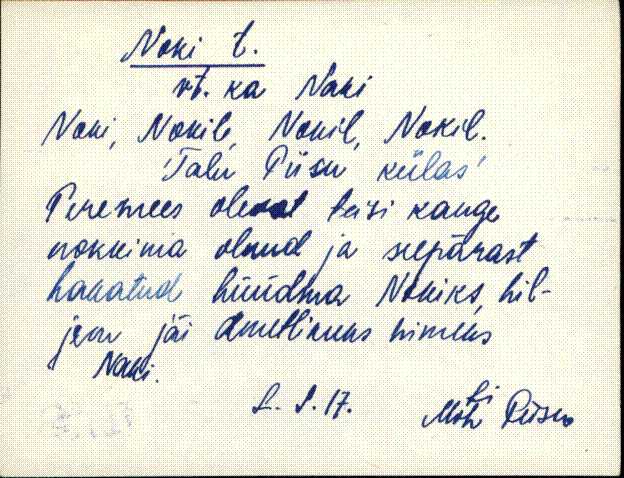 Noki t.
vt. ka Naki
Noki, Nokile, Nokil, Nokil.
'Talu Piisu külas'
Peremees olevat teisi kange
nokkima olnud ja seepärast
hakatud hüüdma Nokiks, hil-
jem jäi ametlikuks nimeks
Naki.
L. S. 17.
Piisu